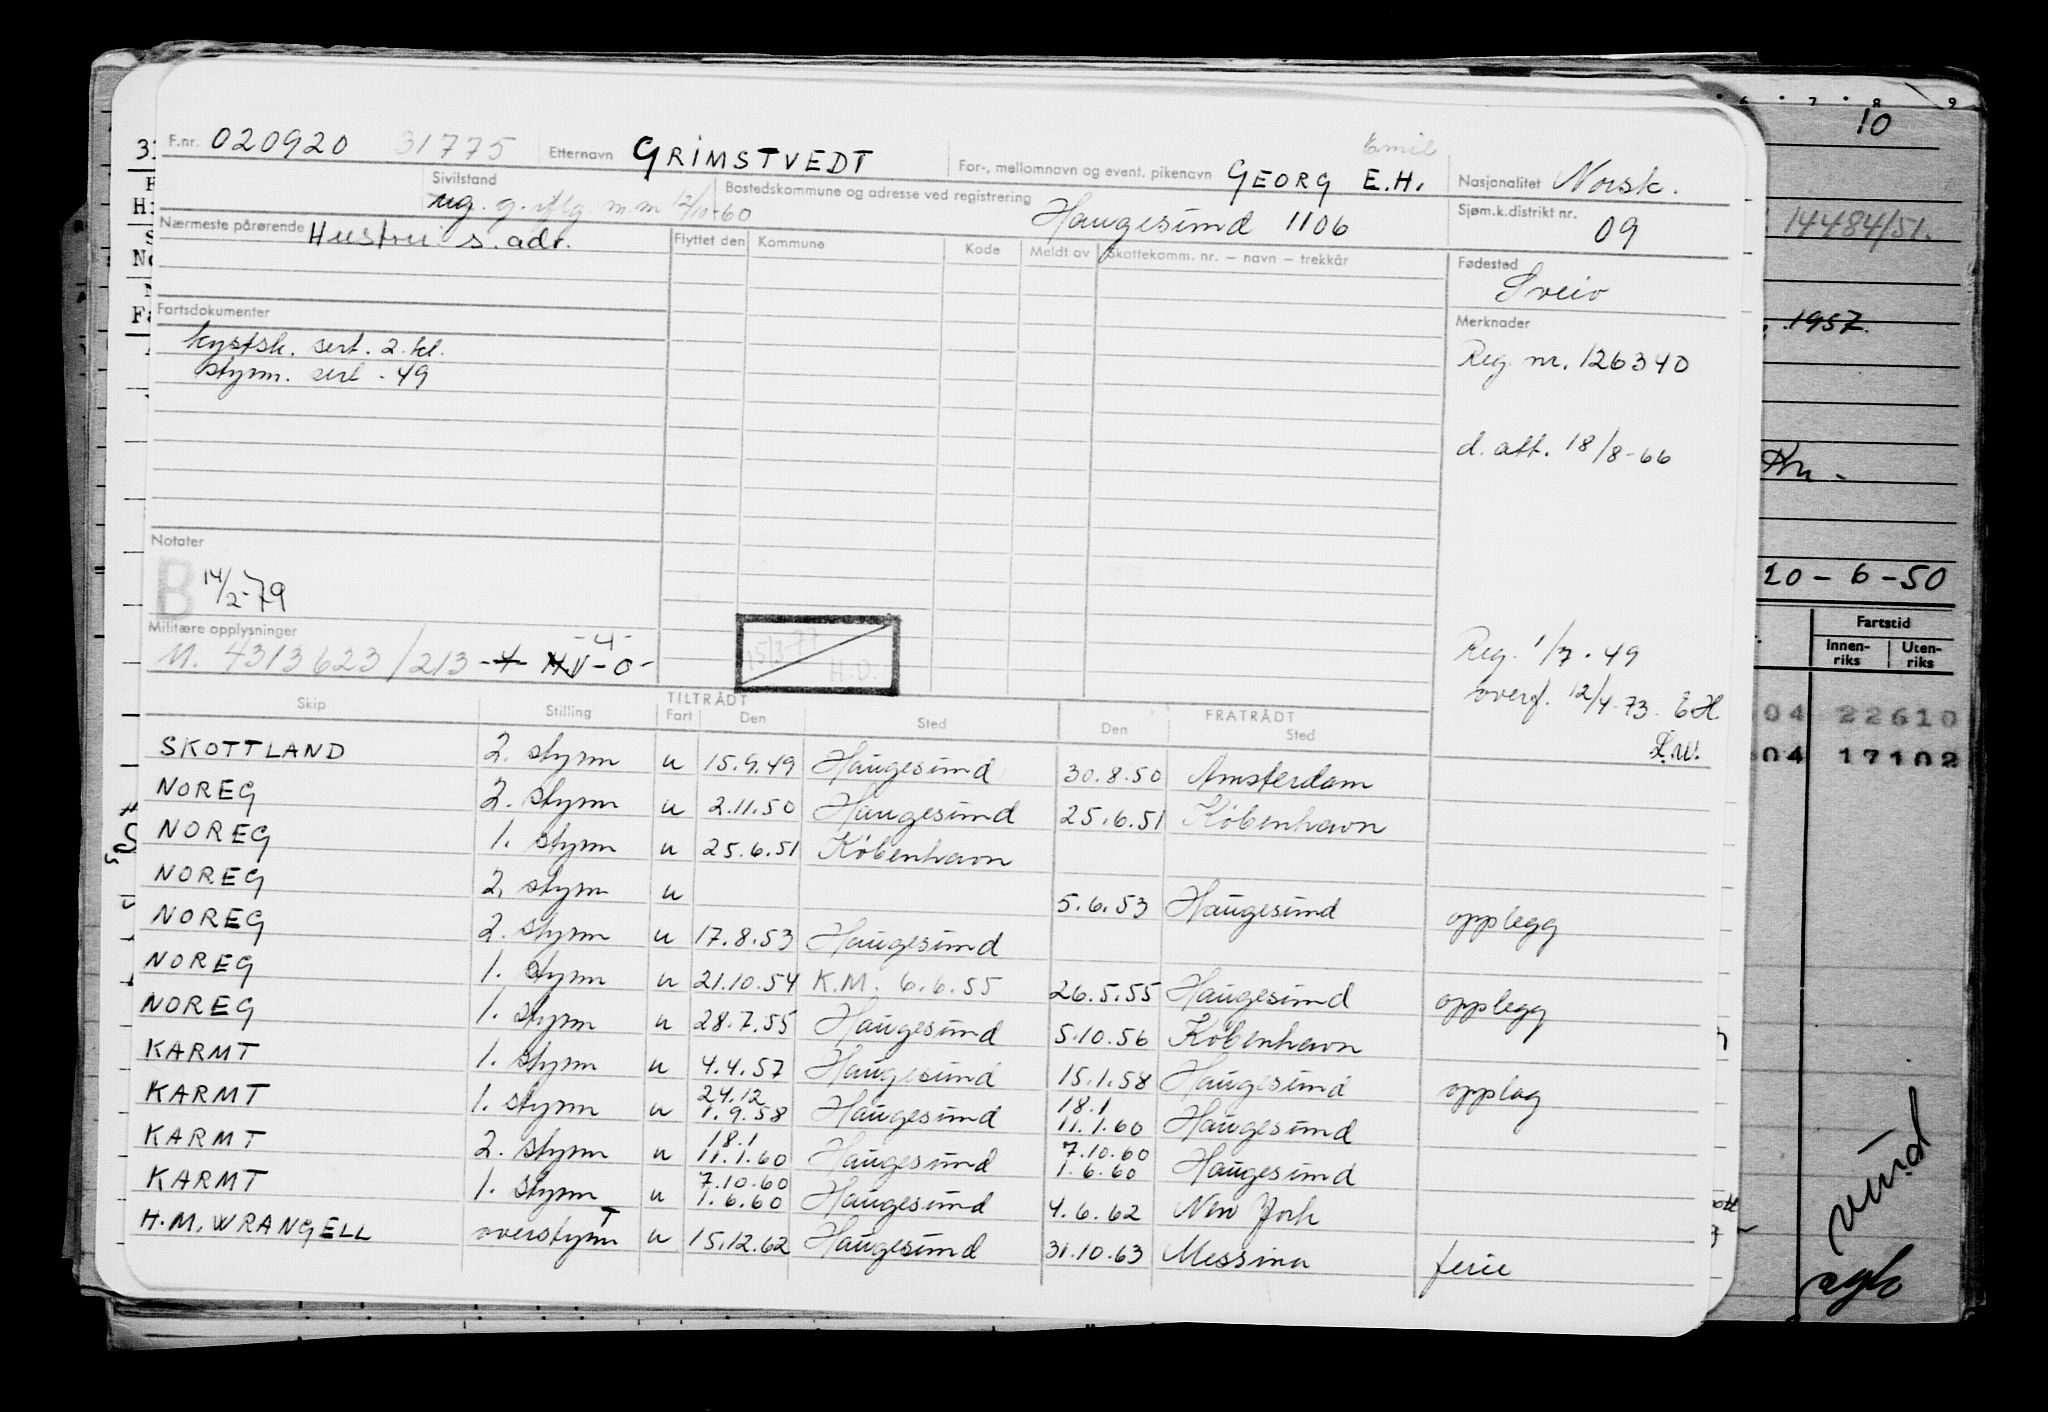 F.nr. 020920 31775 Etternavn GRIMSTVEDT For-, mellomnavn og event. pikenavn GEORG E.H. Emil Nasjonalitet Norsk.
Sivilstand ug. g. iflg. m.m 12/10-60 Bostedskommune og adresse ved registrering Haugesund 1106 Sjøm.k.distrikt nr. 09
Nærmeste pårørende Hustru s. adr. Flyttet den Kommune Kode Meldt av Skattekomm. nr. — navn — trekkår Fødested Sveio
Fartsdokumenter Merknader
kystsk. sert. 2. kl. Reg nr. 126340
styrm. sert - 49
d. att. 18/8-66
Notater
B 14/2-79
Militære opplysninger
M. 4313623/213 -4- -0-
15/3-77 H.O.
Reg. 1/7-49
overf. 12/4-73. EH
L.W.
Skip Stilling TILTRÅDT Fart Den Sted FRATRÅDT Den Sted
SKOTTLAND 2. styrm u 15.9.49 Haugesund 30.8.50 Amsterdam
NOREG 2. styrm u 2.11.50 Haugesund 25.6.51 København
NOREG 1. styrm u 25.6.51 København
NOREG 2. styrm u 5.6.53 Haugesund opplegg
NOREG 2. styrm u 17.8.53 Haugesund
NOREG 1. styrm u 21.10.54 K.M. 6.6.55 26.5.55 Haugesund opplegg
NOREG 1. styrm u 28.7.55 Haugesund 5.10.56 København
KARMT 1. styrm u 4.4.57 Haugesund 15.1.58 Haugesund opplag
KARMT 1. styrm u 24.12 1.9.58 Haugesund 18.1 11.1.60 Haugesund
KARMT 2. styrm u 18.1 11.1.60 Haugesund 7.10.60 1.6.60 Haugesund
KARMT 1. styrm u 7.10.60 1.6.60 Haugesund 4.6.62 New York
H.M. WRANGELL overstyrm T u 15.12.62 Haugesund 31.10.63 Messina ferie
6 7 8 9
10
14484/51.
1957.
20-6-50
Fartstid
Innen-riks Uten-riks
04 22610
04 17102